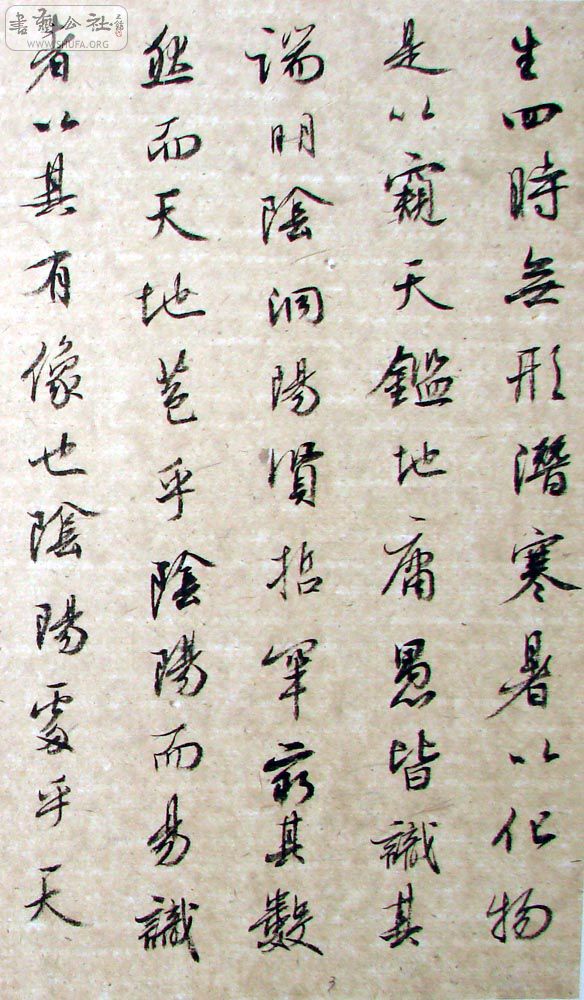 生四時無形潛寒暑以化物
是以窺天鑑地庸愚皆識其
端明陰洞陽賢哲罕窮其數
然而天地苞乎陰陽而易識
者以其有像也陰陽處乎天
書藝公社
WWW.SHUFA.ORG
3